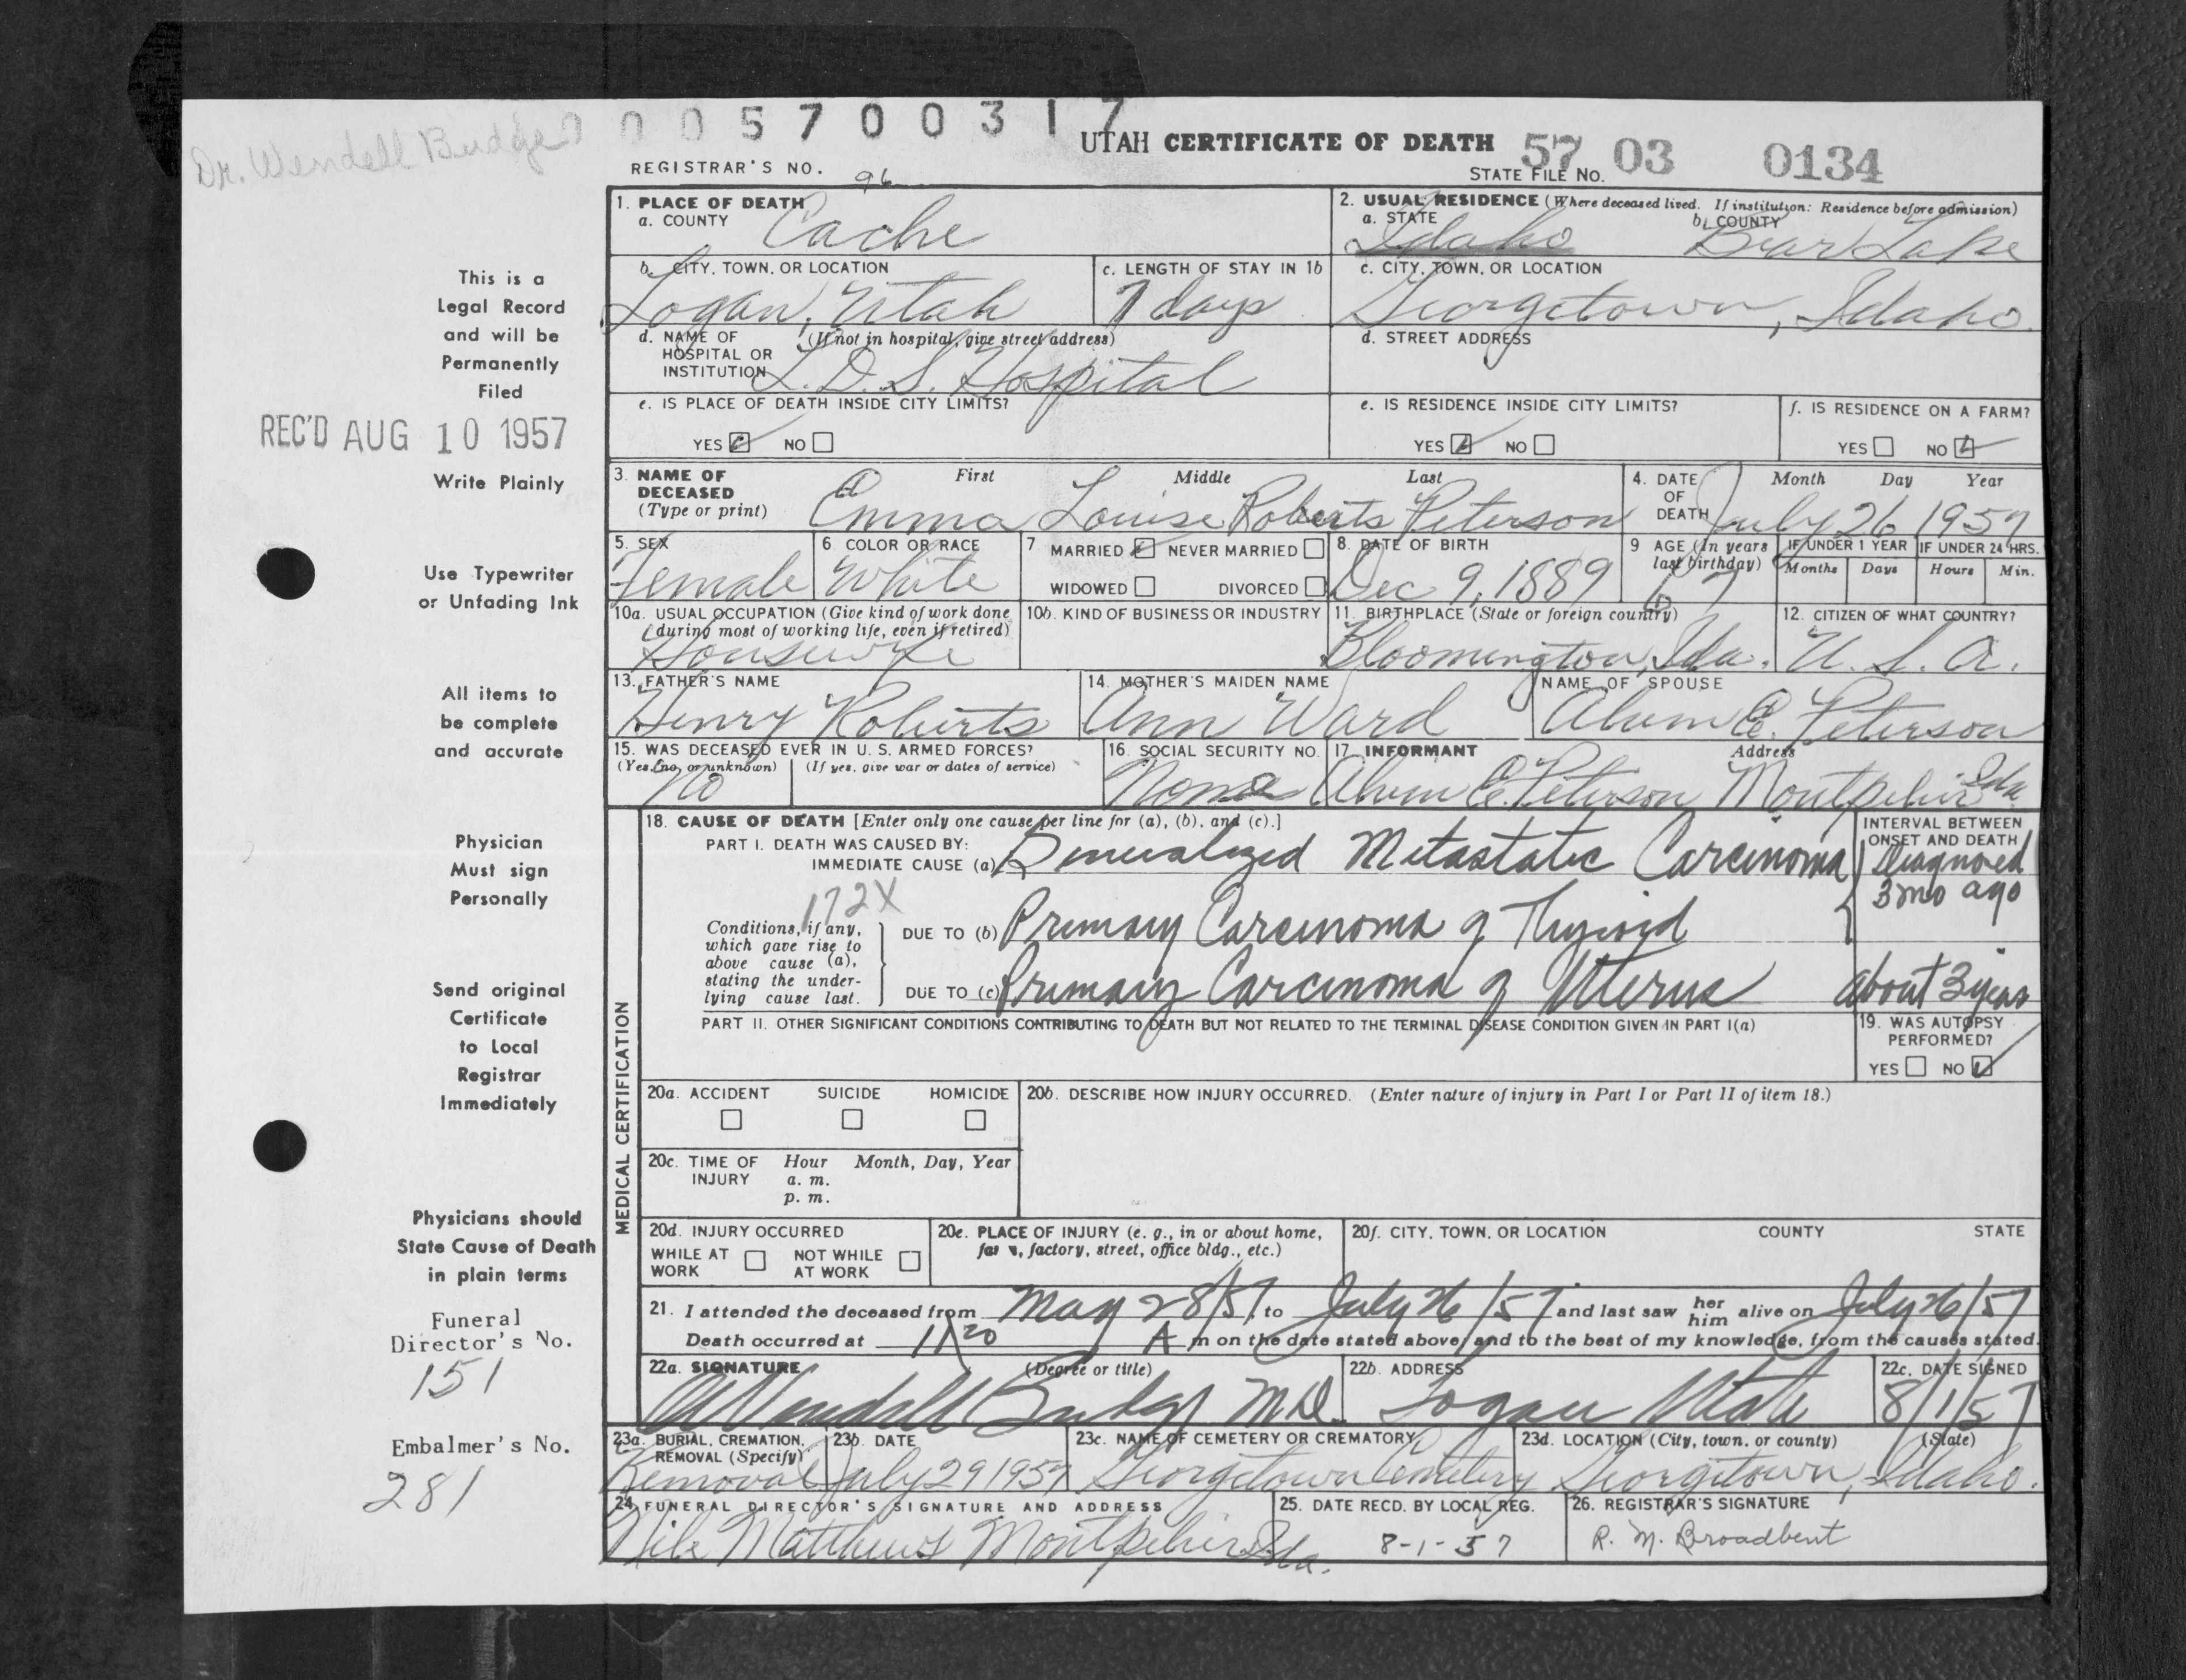 Dr. Wendell Budge
0005700317
UTAH CERTIFICATE OF DEATH
57 03 0134
REGISTRAR'S NO. 96
STATE FILE NO.
1. PLACE OF DEATH
a. COUNTY Cache
2. USUAL RESIDENCE (Where deceased lived. If institution: Residence before admission)
a. STATE Idaho b. COUNTY Bear Lake
b. CITY, TOWN, OR LOCATION Logan, Utah
c. LENGTH OF STAY IN 1b 7 days
c. CITY, TOWN, OR LOCATION Georgetown, Idaho.
d. NAME OF HOSPITAL OR INSTITUTION (If not in hospital, give street address) L. D. S. Hospital
d. STREET ADDRESS
e. IS PLACE OF DEATH INSIDE CITY LIMITS?
YES NO
e. IS RESIDENCE INSIDE CITY LIMITS?
YES NO
f. IS RESIDENCE ON A FARM?
YES NO
3. NAME OF DECEASED (Type or print)
First Middle Last
Emma Louise Roberts Peterson
4. DATE OF DEATH
Month Day Year
July 26 1957
5. SEX Female
6. COLOR OR RACE White
7 MARRIED NEVER MARRIED
WIDOWED DIVORCED
8. DATE OF BIRTH Dec 9, 1889
9 AGE (In years last birthday) 67
IF UNDER 1 YEAR
Months Days
IF UNDER 24 HRS.
Hours Min.
10a. USUAL OCCUPATION (Give kind of work done during most of working life, even if retired)
Housewife
10b. KIND OF BUSINESS OR INDUSTRY
11. BIRTHPLACE (State or foreign country)
Bloomington, Ida.
12. CITIZEN OF WHAT COUNTRY?
U. S. A.
13. FATHER'S NAME
Henry Roberts
14. MOTHER'S MAIDEN NAME
Ann Ward
NAME OF SPOUSE
Alvem E. Peterson
15. WAS DECEASED EVER IN U. S. ARMED FORCES?
(Yes, no, or unknown) (If yes, give war or dates of service)
No
16. SOCIAL SECURITY NO.
None
17. INFORMANT Address
Alvem E. Peterson Montpelier Ida
MEDICAL CERTIFICATION
18. CAUSE OF DEATH [Enter only one cause per line for (a), (b), and (c).]
PART I. DEATH WAS CAUSED BY:
IMMEDIATE CAUSE (a) Generalized Metastatic Carcinoma
INTERVAL BETWEEN ONSET AND DEATH
Diagnosed
3 mo ago
172X
Conditions, if any, which gave rise to above cause (a), stating the underlying cause last.
DUE TO (b) Primary Carcinoma of Thyroid
DUE TO (c) Primary Carcinoma of Uterus
about 3 years
PART II. OTHER SIGNIFICANT CONDITIONS CONTRIBUTING TO DEATH BUT NOT RELATED TO THE TERMINAL DISEASE CONDITION GIVEN IN PART I(a)
19. WAS AUTOPSY PERFORMED?
YES NO
20a. ACCIDENT SUICIDE HOMICIDE
20b. DESCRIBE HOW INJURY OCCURRED. (Enter nature of injury in Part I or Part II of item 18.)
20c. TIME OF INJURY
Hour Month, Day, Year
a. m.
p. m.
20d. INJURY OCCURRED
WHILE AT WORK NOT WHILE AT WORK
20e. PLACE OF INJURY (e. g., in or about home, farm, factory, street, office bldg., etc.)
20f. CITY, TOWN, OR LOCATION COUNTY STATE
21. I attended the deceased from May 28/57 to July 26/57 and last saw her him alive on July 26/57
Death occurred at 11 20 A m on the date stated above, and to the best of my knowledge, from the causes stated.
22a. SIGNATURE (Degree or title)
Wendell Budge M.D.
22b. ADDRESS
Logan Utah
22c. DATE SIGNED
8/1/57
23a. BURIAL, CREMATION, REMOVAL (Specify)
Removal
23b. DATE
July 29 1957
23c. NAME OF CEMETERY OR CREMATORY
Georgetown Cemetery
23d. LOCATION (City, town, or county) (State)
Georgetown, Idaho.
24. FUNERAL DIRECTOR'S SIGNATURE AND ADDRESS
Nile Matthews Montpelier Ida.
25. DATE RECD. BY LOCAL REG.
8-1-57
26. REGISTRAR'S SIGNATURE
R. M. Broadbent
This is a
Legal Record
and will be
Permanently
Filed
REC'D AUG 10 1957
Write Plainly
Use Typewriter
or Unfading Ink
All items to
be complete
and accurate
Physician
Must sign
Personally
Send original
Certificate
to Local
Registrar
Immediately
Physicians should
State Cause of Death
in plain terms
Funeral
Director's No.
151
Embalmer's No.
281